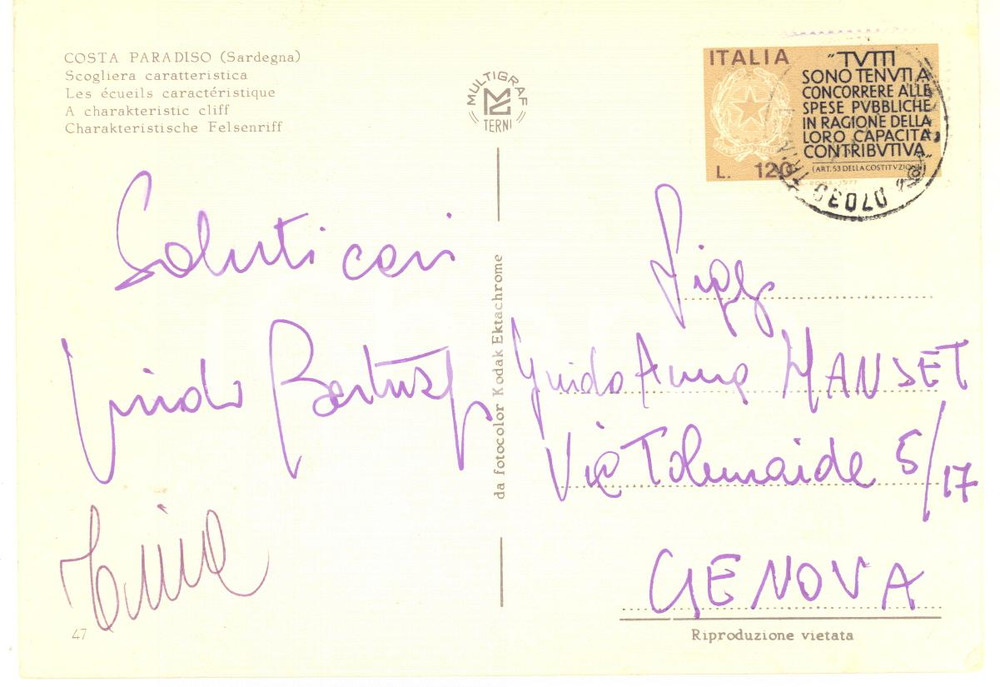 COSTA PARADISO (Sardegna)
Scogliera caratteristica
Les écueils caractéristique
A charakteristic cliff
Charakteristische Felsenriff
MULTIGRAF
TERNI
ITALIA
"TVTTI
SONO TENVTI A
CONCORRERE ALLE
SPESE PVBBLICHE
IN RAGIONE DELLA
LORO CAPACITÀ
CONTRIBVTIVA"
(ART. 53 DELLA COSTITVZIONE)
L. 120
07030
Saluti cari
Guido
da fotocolor Kodak Ektachrome
Guido Anna MANSET
Via Tolemaide 5/17
GENOVA
47
Riproduzione vietata